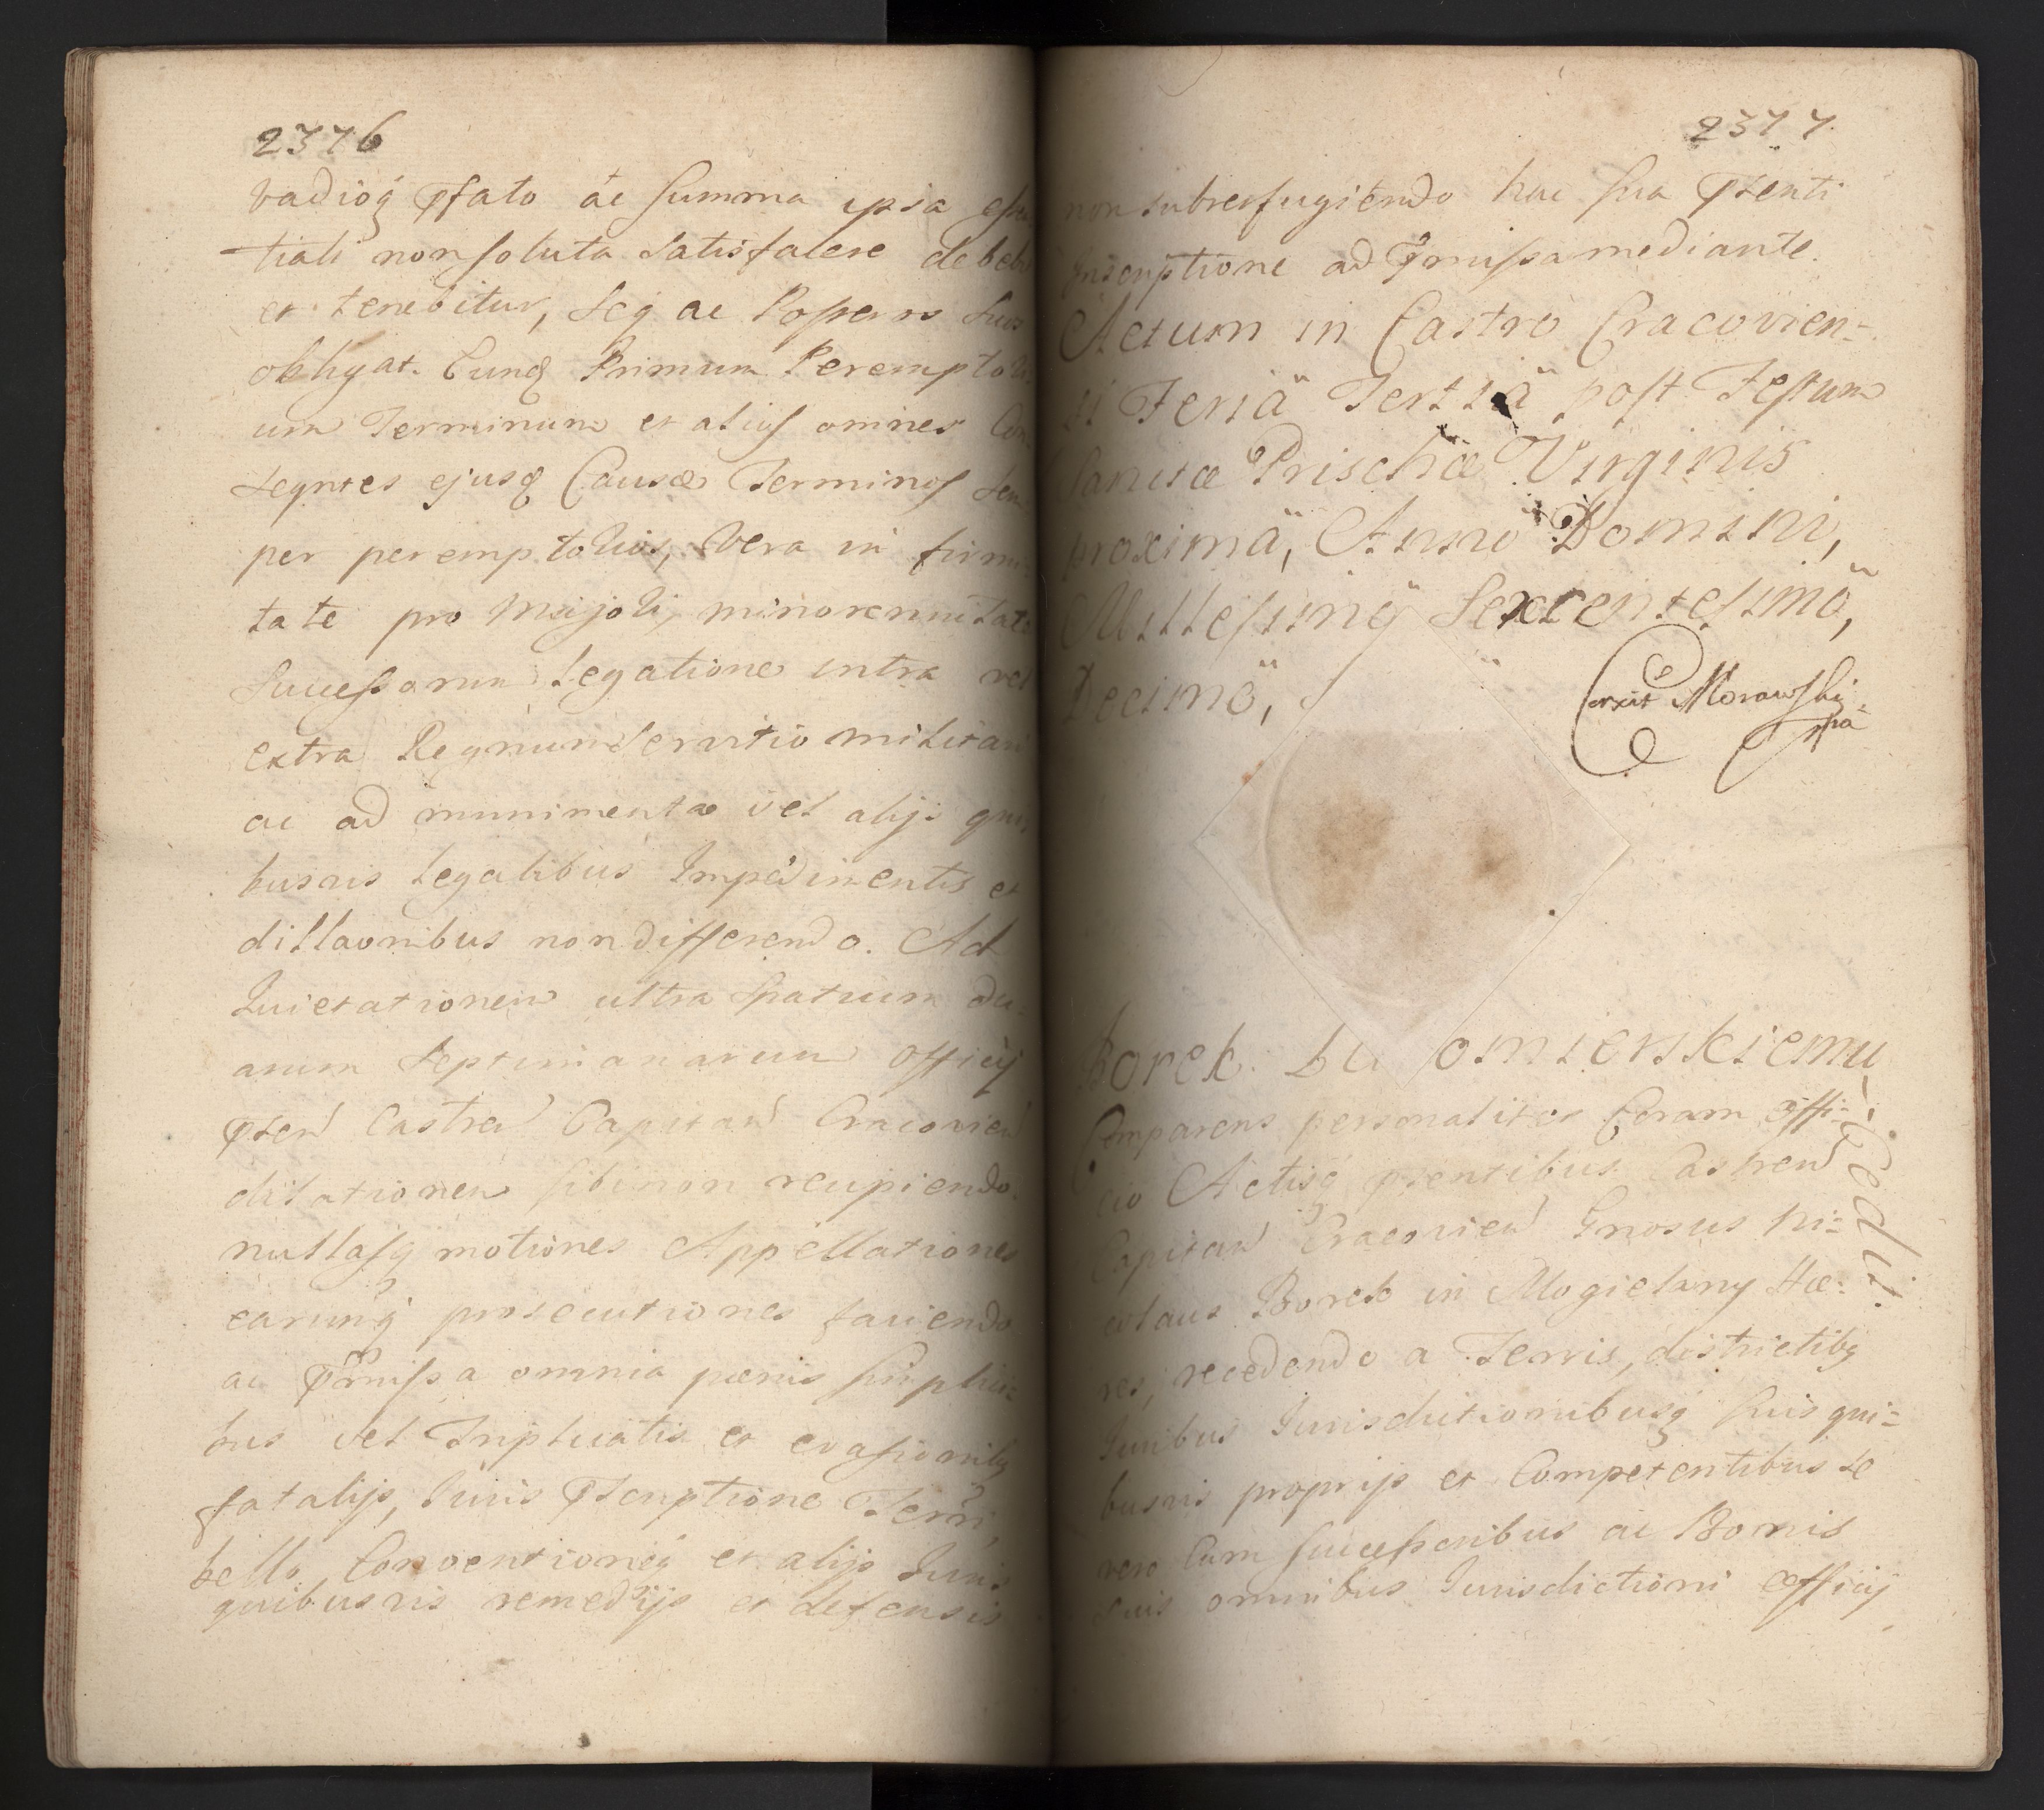 2376
vadioq pfato ac summa ipsa essen
tiali non soluta satisfacere debebit
et tenebitur, seq ac Posseros suos
obligat. Eunq Primum Peremptori
um Terminum et alios omnes Con
seqntes ejusq Causæ Terminos sem
per peremptorios, Vera in firmi
tate pro Majori, minorennitate
Successorum Legatione intra vel
extra Regnum Servitio militari
ac ad munimenta vel alijs qui
busvis Legalibus Impedimentis et
dillaonibus non differendo. Ad
Quietationem ultra Spatium du-
arum Septimanarum Officij
psen Castren Capitan Cracovien
dilationem sibi non recipiendo.
nullasq motiones Appellationes
earumq prosecutiones faciendo
ac pmissa omnia pænis simplici-
bus vel Triplicatis et evasionibq
fatalijs, Juris pscriptione Terri
bello, Conventioneq et alijs Juris
quibusvis remedijs et defensis
2377.
non subterfugiendo hac sua psenti
Inscriptione ad pmissa mediante.
Actum in Castro Cracovien=
si Feriä Tertiä post Festum
Sanctæ Prischæ Virginis
proximä, Anno Domini,
Millesimö Sexcentesimö,
Decimö,
Corxit Morawski
mpa
Borek. omierskiemu
Cedit.
Comparens personaliter Coram Offi=
cio Actisq psentibus Castren
Capitan Cracovien Gnosus Ni=
colaus Borek in Mogielany Hæ-
res, recedendo a Terris, districtibq
Juribus Jurisdictionibusq suis qui=
busvis proprijs et Competentibus se
vero Cum successoribus ac Bonis
suis omnibus Jurisdictioni Officij